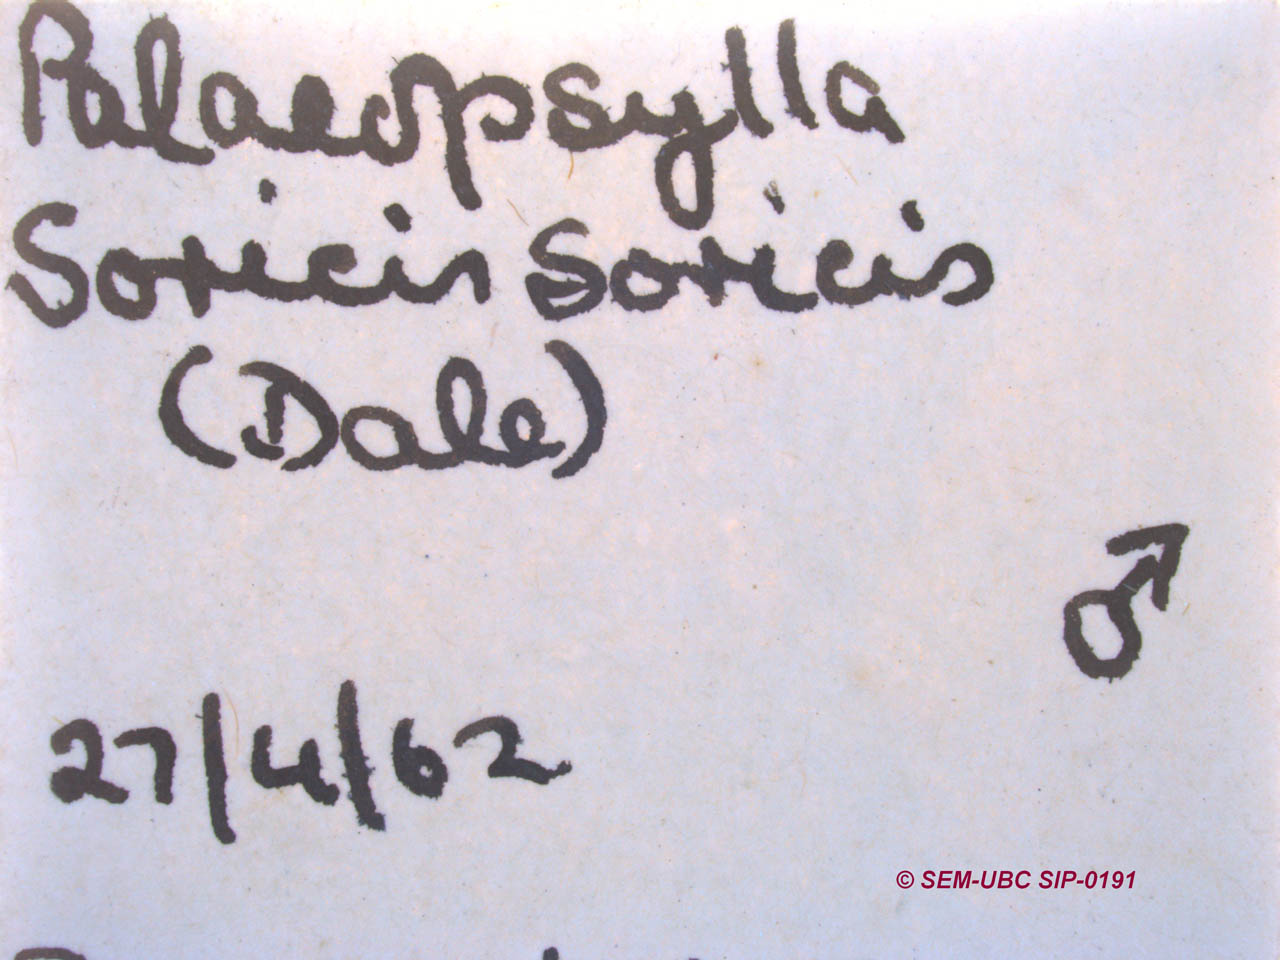 Palaeopsylla
Soricis Soricis
(Dale)
♂
27/4/62
© SEM-UBC SIP-0191